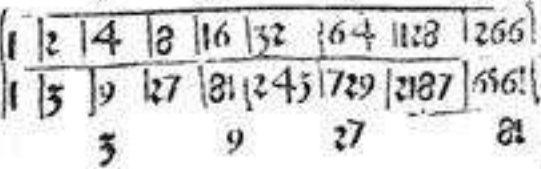 1 2 4 8 16 32 64 128 266
1 3 9 27 81 245 729 2187 6561
3 9 27 81